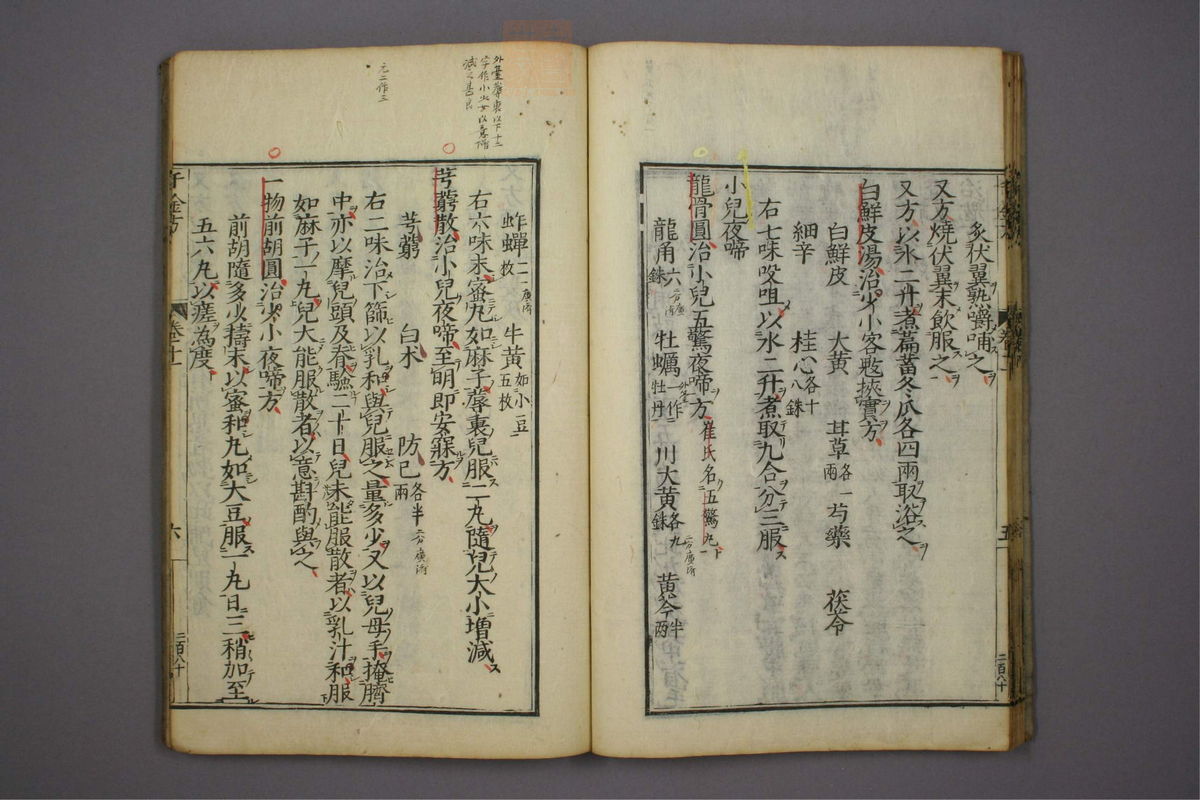 炙伏翼熟嚼哺之
又方燒伏翼末飲服之
又方以水二升煮萹蓄冬瓜各四兩取浴之
白鮮皮湯治少小客忤挾實方
白鮮皮 大黃 甘草各一兩 芍藥 茯苓
細辛 桂心各十八銖
右七味㕮咀以水二升煮取九合分三服
小兒夜啼
龍骨圓治小兒五驚夜啼方 崔氏名五驚丸
龍角六銖 牡蠣一作牡丹 川大黃各九銖 黃芩半兩
千金方 卷十一 五 二百八十
蚱蟬二枚 牛黃如小豆五枚
右六味末蜜丸如麻子蓐裹兒服二丸隨兒大小增減
芎藭散治小兒夜啼至明即安寐方
芎藭 白朮 防己各半兩
右二味治下篩以乳和與兒服之量多少又以兒母手掩臍
中亦以摩兒頭及脊驗二十日兒未能服散者以乳汁和服
如麻子一丸兒大能服散者以意斟酌與之
一物前胡圓治少小夜啼方
前胡隨多少擣末以蜜和丸如大豆服一丸日三稍加至
五六丸以瘥為度
千金方 卷十一 六 二百八十
元二作三